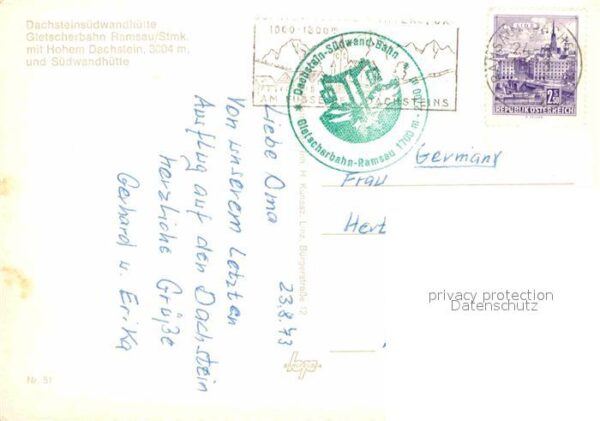 Dachsteinsüdwandhütte
Gletscherbahn Ramsau/Stmk.
mit Hohem Dachstein, 3004 m,
und Südwandhütte
1000-1300m
AM FUSSE DACHSTEINS
Dachstein-Südwand-Bahn
Gletscherbahn-Ramsau 1700 m
2,50
REPUBLIK ÖSTERREICH
Germany
Frau
Hert
23.8.73
Liebe Oma
Von unserem Letzten
Ausflug auf den Dachstein
herzliche Grüße
Gerhard u. Erika
H. Kunasz, Linz, Bürgerstraße 12
privacy protection
Datenschutz
Nr. 51